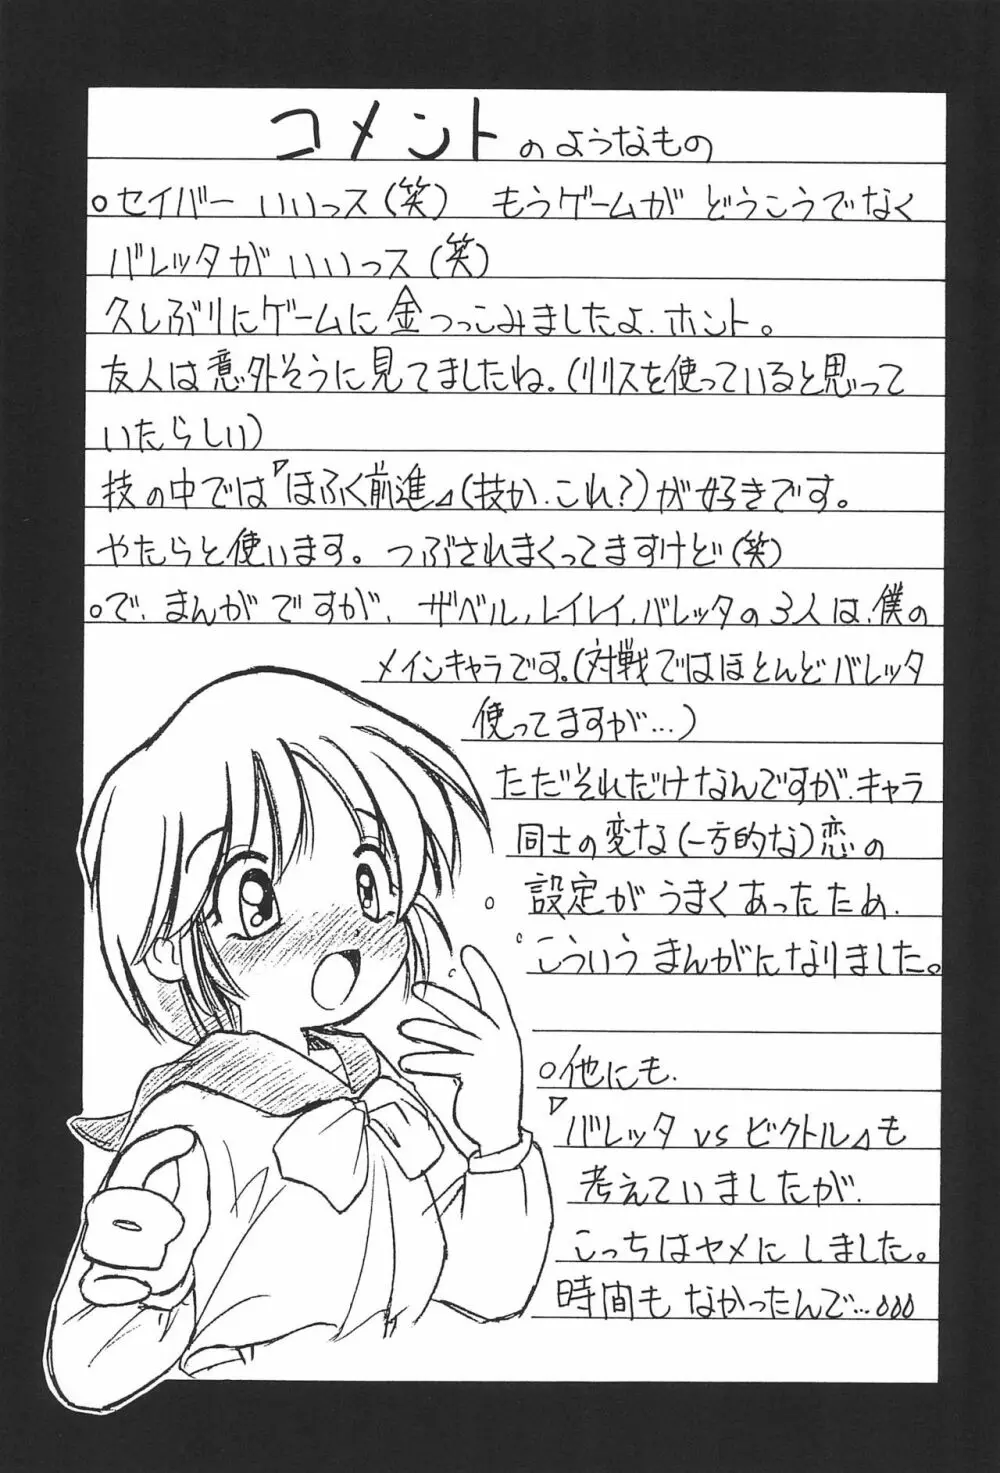 コメントのようなもの
○セイバー いいっス(笑) もうゲームが どうこうでなく
バレッタが いいっス(笑)
久しぶりにゲームに金つっこみましたよ.ホント。
友人は意外そうに見てましたね。(リリスを使っていると思って
いたらしい)
技の中では『ほふく前進』(技か.これ?)が好きです。
やたらと使います。つぶされまくってますけど(笑)
○で、まんがですが、ザベル,レイレイ,バレッタの3人は、僕の
メインキャラです。(対戦ではほとんどバレッタ
使ってますが…)
ただそれだけなんですが、キャラ
同士の変な(一方的な)恋の
設定が うまく あったため、
こういう まんがになりました。
○他にも、
『バレッタ vs ビクトル』も
考えていましたが、
こっちはヤメに しました。
時間も なかったんで…。。。